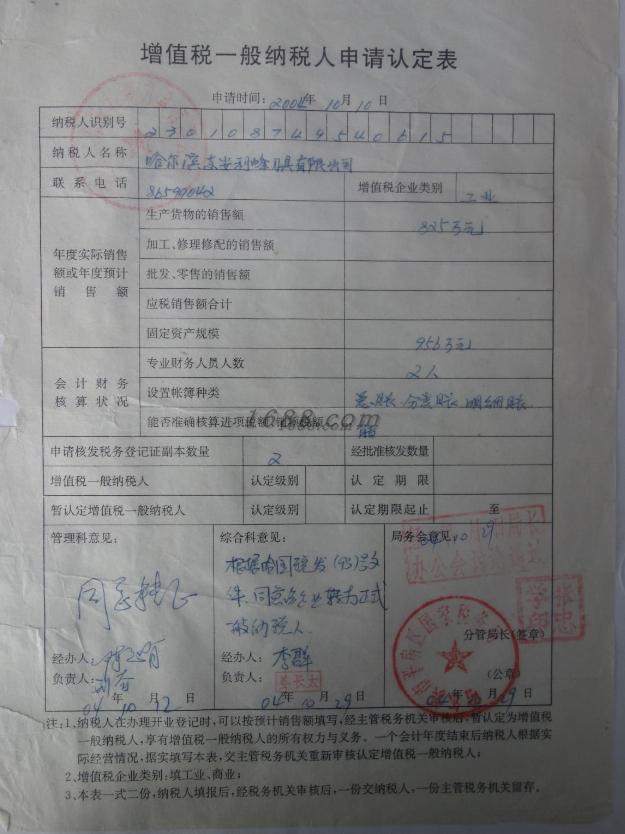 增值税一般纳税人申请认定表
申请时间：2004年10月10日
纳税人识别号 230108749540615
纳税人名称 哈尔滨 有限公司
联系电话 86590042 增值税企业类别 工业
年度实际销售额或年度预计销售额
生产货物的销售额 825万元
加工、修理修配的销售额
批发、零售的销售额
应税销售额合计
固定资产规模 956万元
会计财务核算状况
专业财务人员人数 2人
设置帐簿种类 总账、分类账、明细账
能否准确核算进项税额、销项税额 能
1688.com
申请核发税务登记证副本数量 2 经批准核发数量
增值税一般纳税人 认定级别 认定期限
暂认定增值税一般纳税人 认定级别 认定期限起止 至
管理科意见： 综合科意见： 局务会意见：
同意转正
根据 国税发 文
件，同意企业转为正式
一般纳税人
分管局长（签章）
经办人： 经办人：李群
负责人： 负责人： （公章）
04年10月12日 04年10月29日 04年10月29日
注：1、纳税人在办理开业登记时，可以按预计销售额填写，经主管税务机关审核后，暂认定为增值税
一般纳税人，享有增值税一般纳税人的所有权力与义务。一个会计年度结束后纳税人根据实
际经营情况，据实填写本表，交主管税务机关重新审核认定增值税一般纳税人；
2、增值税企业类别：填工业、商业；
3、本表一式二份，纳税人填报后，经税务机关审核后，一份交纳税人，一份主管税务机关留存。